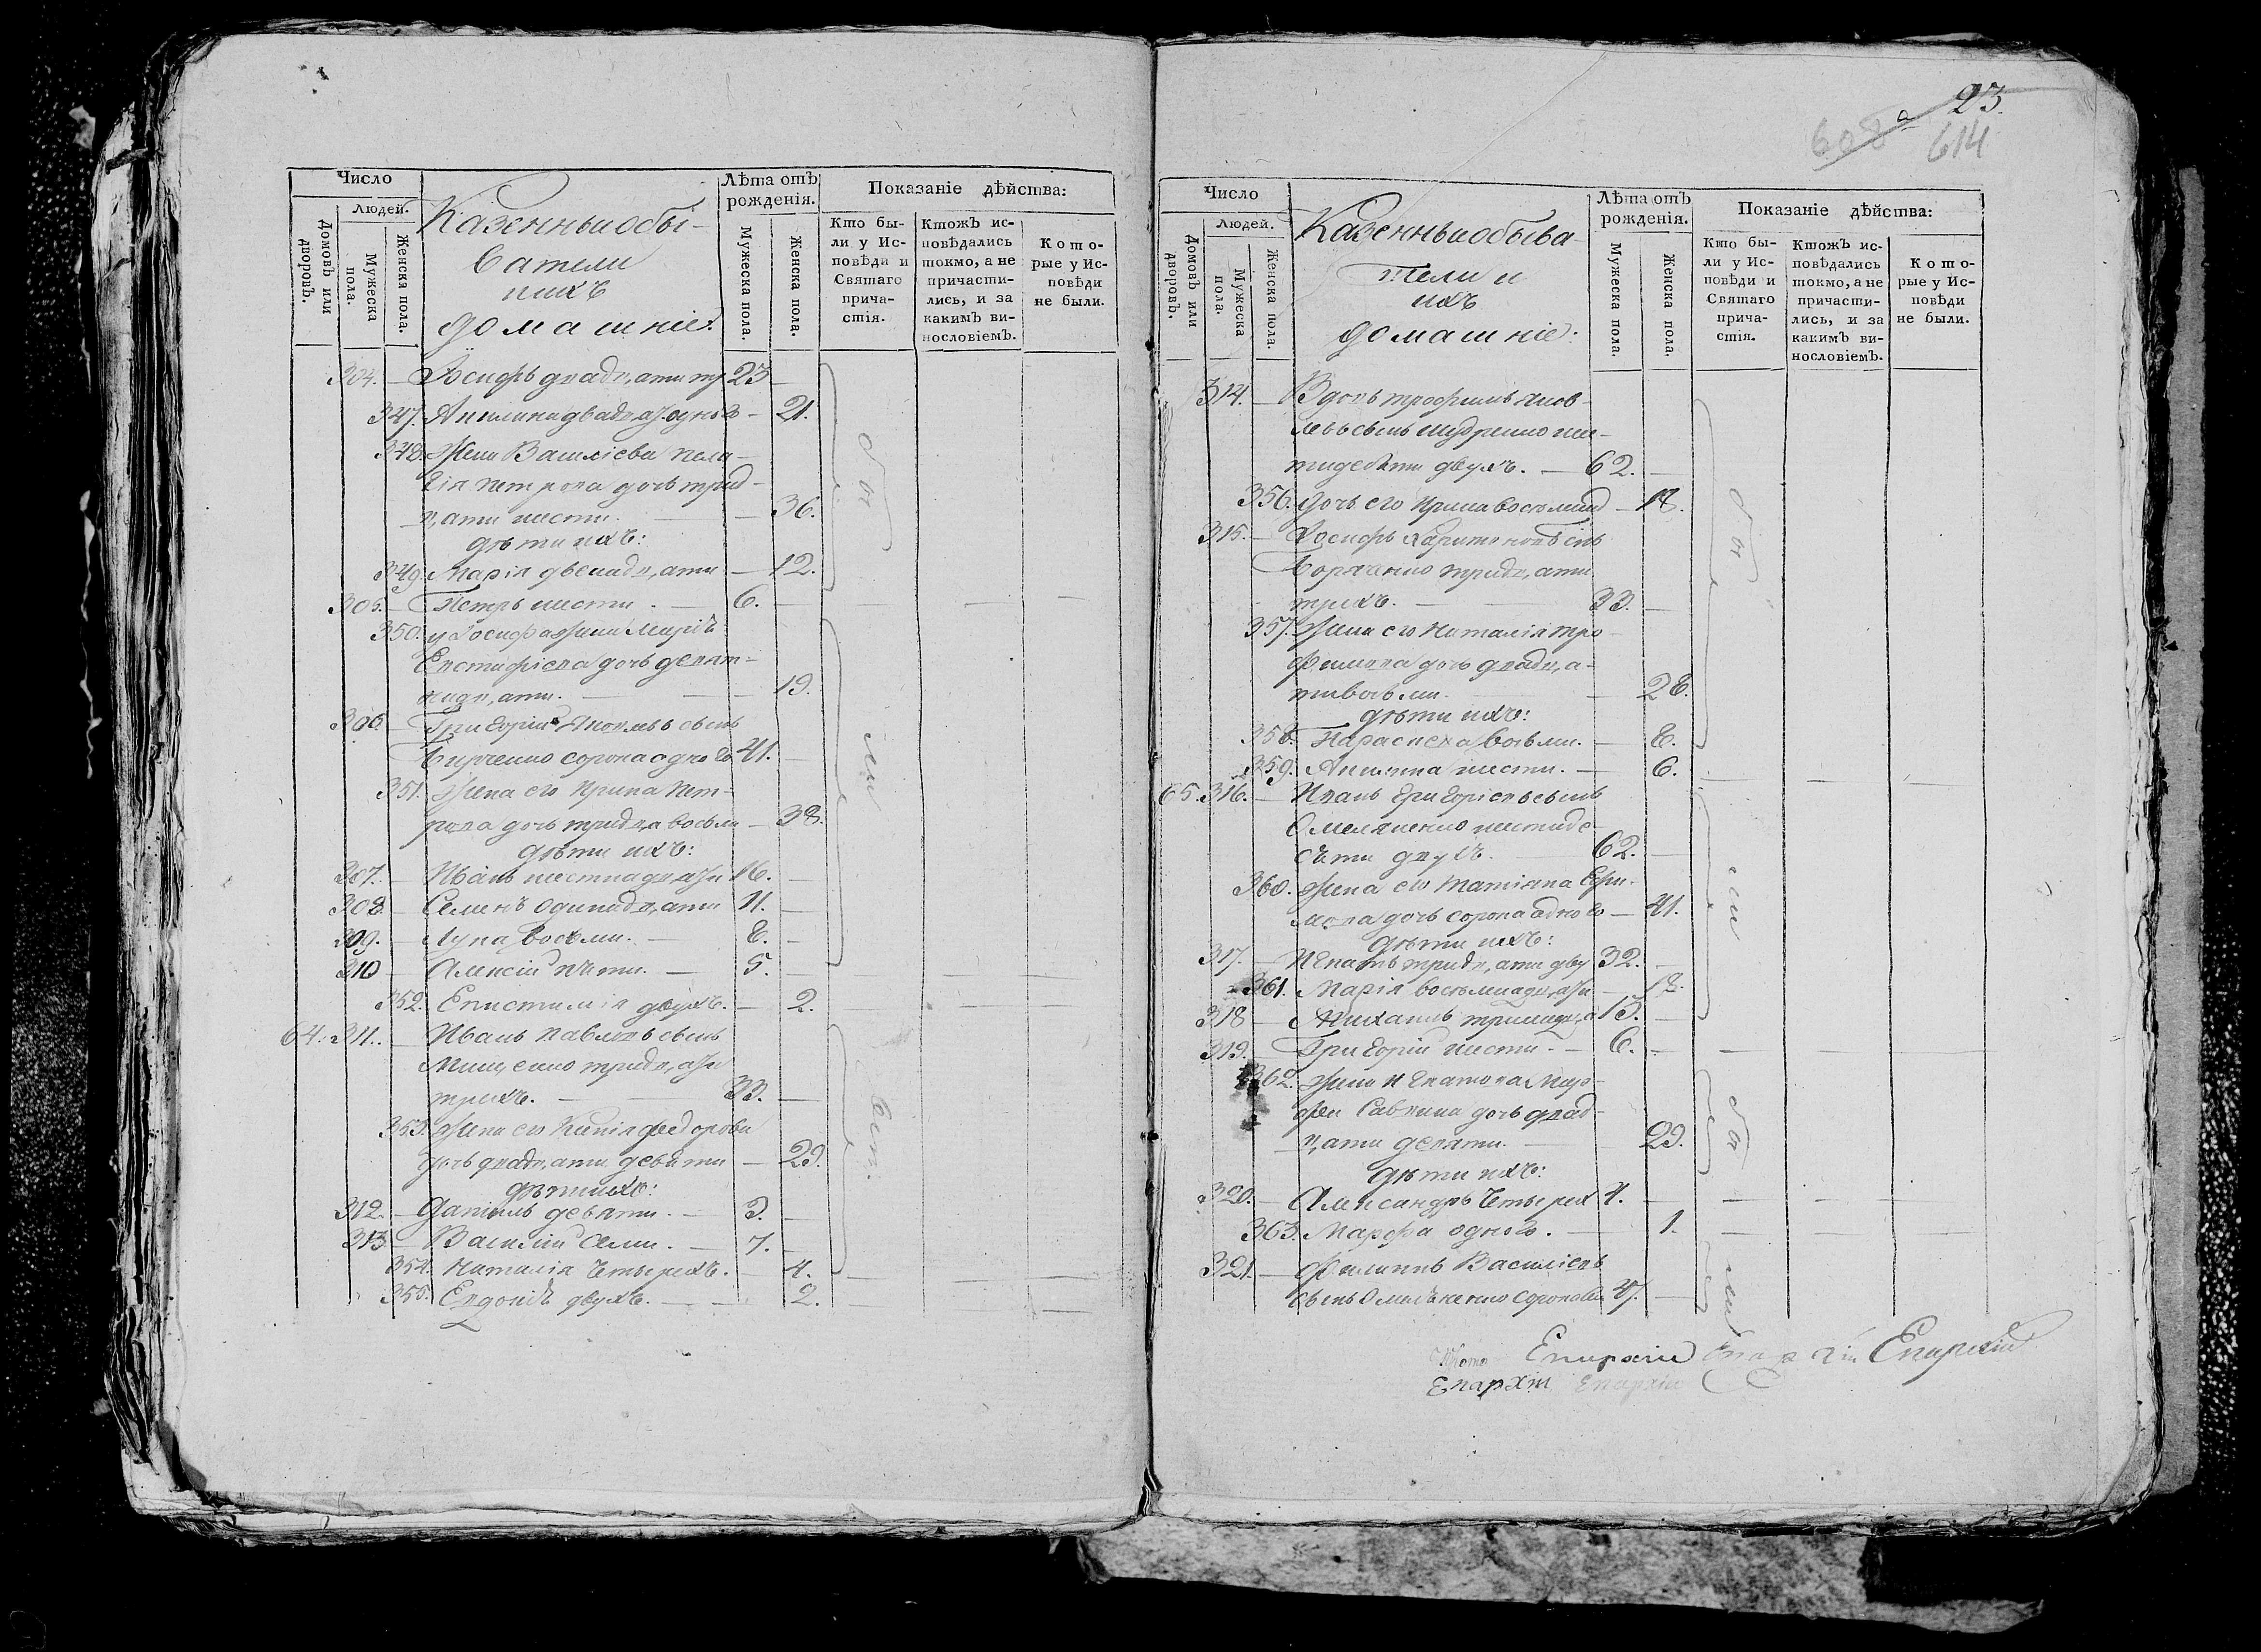 Число
Людей.
Домовъ или дворовъ.
Мужеска пола.
Женска пола.
Казенныи обы-
ватели
и ихъ
домашніе:
Лѣта отъ рожденія.
Мужеска пола.
Женска пола.
Показаніе дѣйства:
Кто бы-
ли у Ис-
повѣди и
Святаго
прича-
стія.
Ктожъ ис-
повѣдались
токмо, а не
причасти-
лись, и за
какимъ ви-
нословіемъ.
Кото-
рые у Ис-
повѣди
не были.
304. Іосифъ двадцати тр 23
347. Акилина двадцати одного 21.
348. Жена Василіева Пела-
гія Петрова дочь трид-
цати шести. 36.
дѣти ихъ:
349. Марія двенадцати 12.
305. Петръ шести. 6.
350. у Іосифа жена Марія
Евстафіева дочь девят-
надцати. 19.
306 Григорій Яковлевъ сынъ
сорока одного 41.
351. Жена его Ирина Пет-
рова дочь тридца восьми 38.
дѣти ихъ:
307. Иванъ шестнадцати 16.
308. Семенъ одинадцати 11.
309. Лука восьми. 8.
310 Алексій пяти. 5.
352. Епистимія двухъ. 2.
64. 311. Иванъ Павловъ сынъ
Мищенко тридцати
трехъ. 33.
353. Жена его Ксенія Федорова
дочь двадцати девяти 29.
дѣти ихъ:
312. Даніилъ девяти. 9.
313 Василій семи. 7.
354. Наталія четырехъ. 4.
355. Евдокія двухъ. 2.
были
23.
608 614
Число
Людей.
Домовъ или дворовъ.
Мужеска пола.
Женска пола.
Казенныи обыва-
тели и
ихъ
домашніе:
Лѣта отъ рожденія.
Мужеска пола.
Женска пола.
Показаніе дѣйства:
Кто бы-
ли у Ис-
повѣди и
Святаго
прича-
стія.
Ктожъ ис-
повѣдались
токмо, а не
причасти-
лись, и за
какимъ ви-
нословіемъ.
Кото-
рые у Ис-
повѣди
не были.
314. Вдовъ Трофимъ Яков-
левъ сынъ шес-
тидесяти двухъ. 62.
356. дочь его Ирина восемнад 18.
315. Іосифъ Харитоновъ снъ
тридцати
трехъ. 33.
357. Жена его Наталія Тро-
фимова дочь двадца-
тивосьми. 28.
дѣти ихъ:
358. Параскева восьми. 8.
359. Акилина шести. 6.
65. 316. Иванъ Григоріевъ сынъ
Омеляненко шестиде-
сяти двухъ. 62.
360. Жена его Татіана Ефи-
мова дочь сорока одного 41.
дѣти ихъ:
317. Игнатъ тридцати дву 32.
361. Марія восемнадцати 18.
318 Михаилъ тринадца 13.
319. Григорій шести. 6.
362. Жена Игнатова Мар-
фа Саввина дочь двад-
цати девяти. 29.
дѣти ихъ:
320. Александръ четырех 4.
363. Марфа одного. 1.
321. Филиппъ Василіевъ
сынъ Омельяненко сорока се 47.
Епархіи Епархіи Епархіи
Епархіи Епархіи